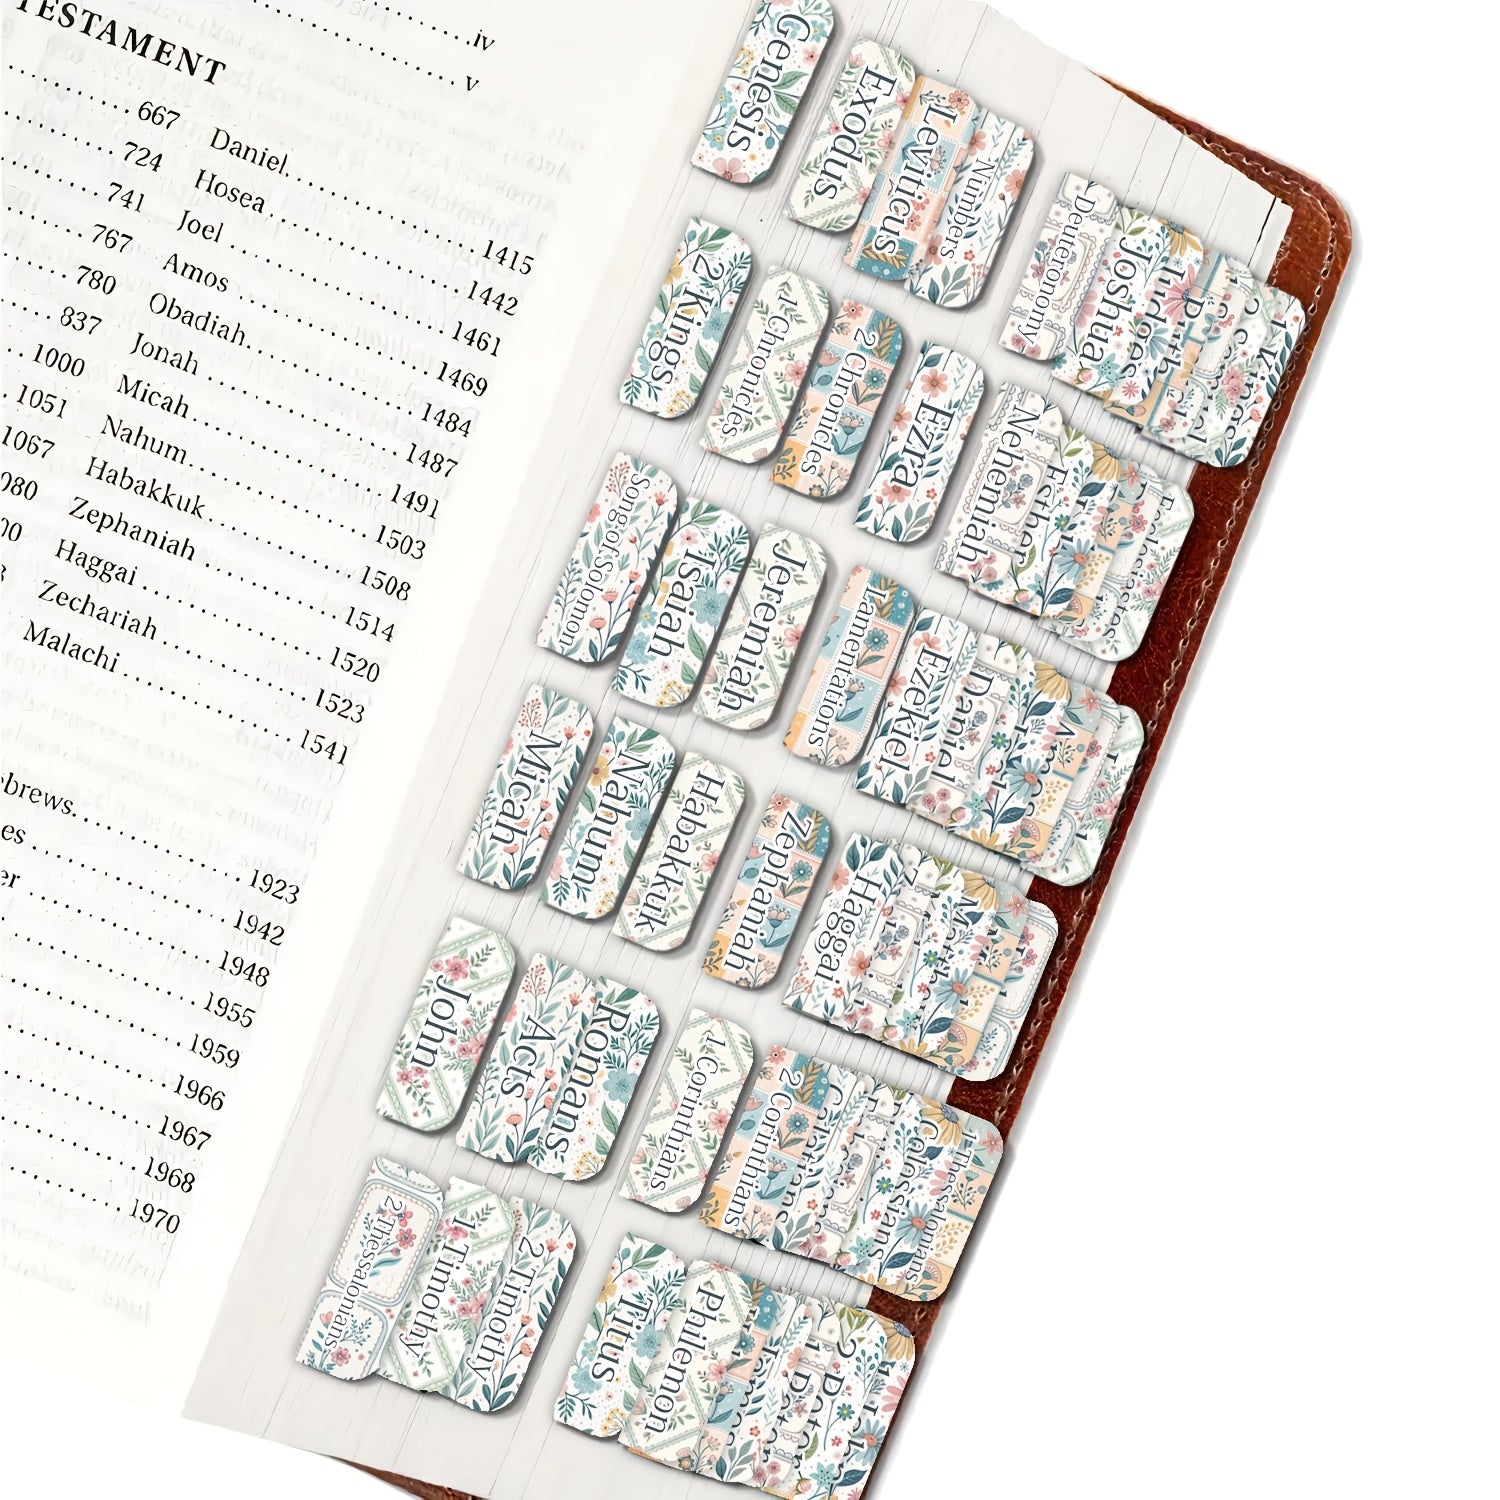 TESTAMENT
iv
v
667 Daniel 1415
724 Hosea 1442
741 Joel 1461
767 Amos 1469
780 Obadiah 1484
837 Jonah 1487
1000 Micah 1491
1051 Nahum 1503
1067 Habakkuk 1508
080 Zephaniah 1514
00 Haggai 1520
Zechariah 1523
Malachi 1541
brews 1923
es 1942
er 1948
1955
1959
1966
1967
1968
1970
Genesis
Exodus
Leviticus
Numbers
Deuteronomy
Joshua
Judges
Ruth
2 Kings
1 Chronicles
2 Chronicles
Ezra
Nehemiah
Esther
Ecclesiastes
Song of Solomon
Isaiah
Jeremiah
Lamentations
Ezekiel
Daniel
Micah
Nahum
Habakkuk
Zephaniah
Haggai
John
Acts
Romans
1 Corinthians
2 Corinthians
Colossians
1 Thessalonians
2 Thessalonians
1 Timothy
2 Timothy
Titus
Philemon